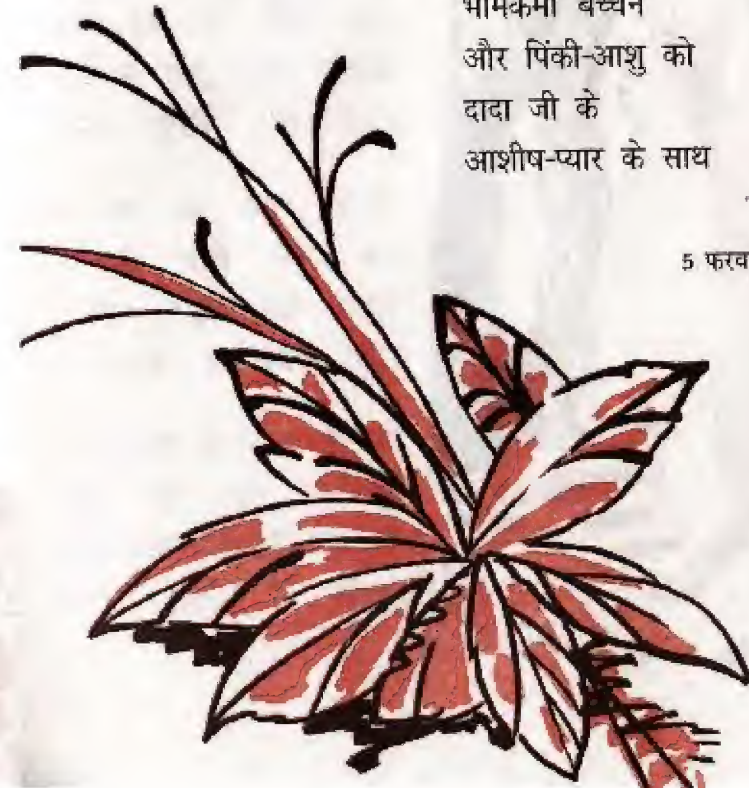 बच्चन
और पिंकी-आशु को
दादा जी के
आशीष-प्यार के साथ
5 फरव